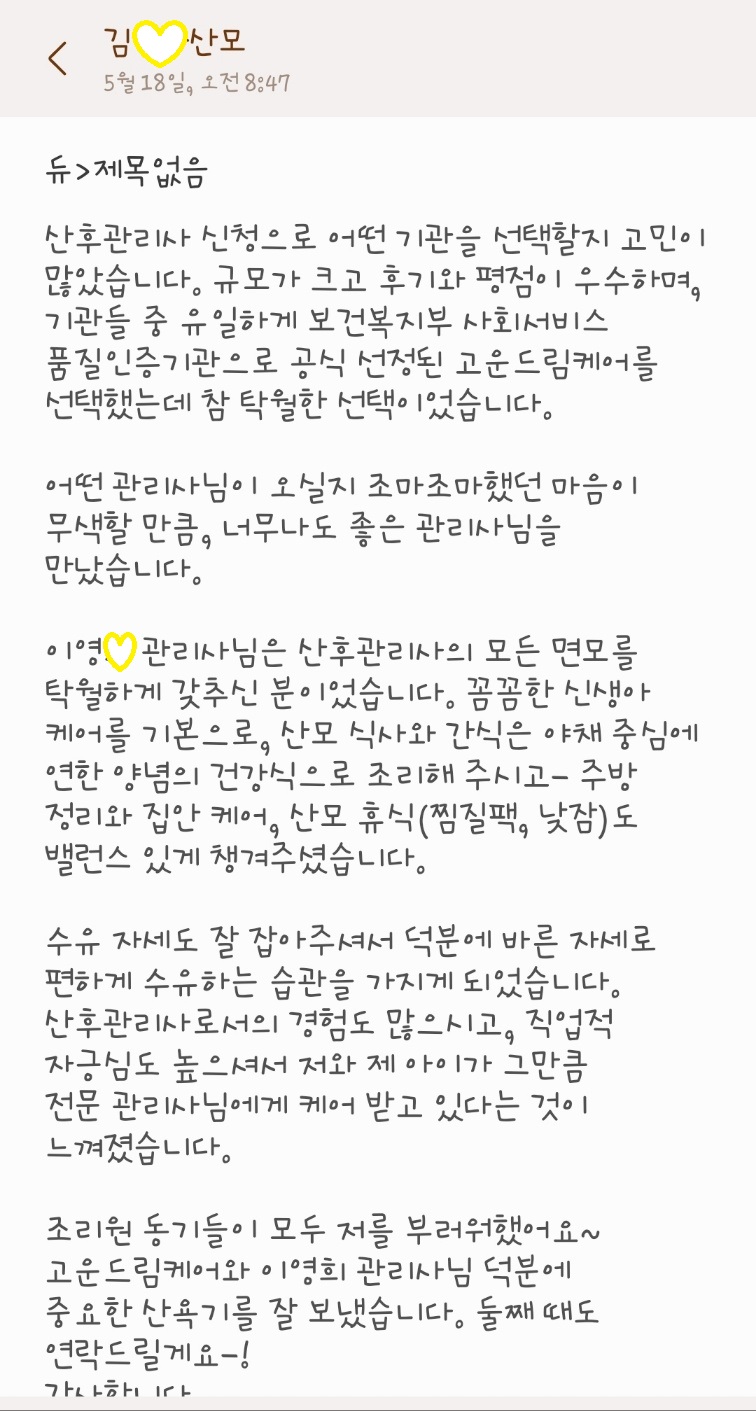 김 산모
5월 18일, 오전 8:47
듀>제목없음
산후관리사 신청으로 어떤 기관을 선택할지 고민이
많았습니다. 규모가 크고 후기와 평점이 우수하며,
기관들 중 유일하게 보건복지부 사회서비스
품질인증기관으로 공식 선정된 고운드림케어를
선택했는데 참 탁월한 선택이었습니다.
어떤 관리사님이 오실지 조마조마했던 마음이
무색할 만큼, 너무나도 좋은 관리사님을
만났습니다.
이영 관리사님은 산후관리사의 모든 면모를
탁월하게 갖추신 분이었습니다. 꼼꼼한 신생아
케어를 기본으로, 산모 식사와 간식은 야채 중심에
연한 양념의 건강식으로 조리해 주시고- 주방
정리와 집안 케어, 산모 휴식(찜질팩, 낮잠)도
밸런스 있게 챙겨주셨습니다.
수유 자세도 잘 잡아주셔서 덕분에 바른 자세로
편하게 수유하는 습관을 가지게 되었습니다.
산후관리사로서의 경험도 많으시고, 직업적
자긍심도 높으셔서 저와 제 아이가 그만큼
전문 관리사님에게 케어 받고 있다는 것이
느껴졌습니다.
조리원 동기들이 모두 저를 부러워했어요~
고운드림케어와 이영희 관리사님 덕분에
중요한 산욕기를 잘 보냈습니다. 둘째 때도
연락드릴게요-!
감사합니다